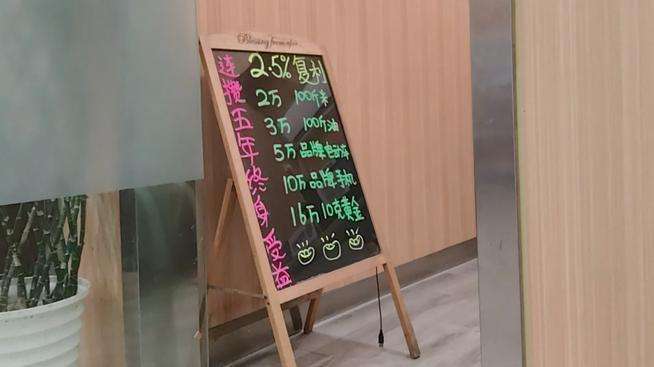 Blessing from after
连攒五年终身受益
2.5% 复利
2万 100斤米
3万 100斤油
5万 品牌电动车
10万 品牌手机
16万 10克黄金